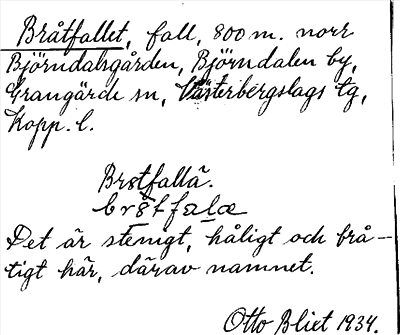 Bråtfallet, fall, 800 m. norr
Björndalsgården, Björndalen by,
Grangärde sn, Västerbergslags tg,
Kopp. l.
Brøtfallä.
Det är stenigt, håligt och brå-
tigt här, därav namnet.
Otto Blixt 1934.